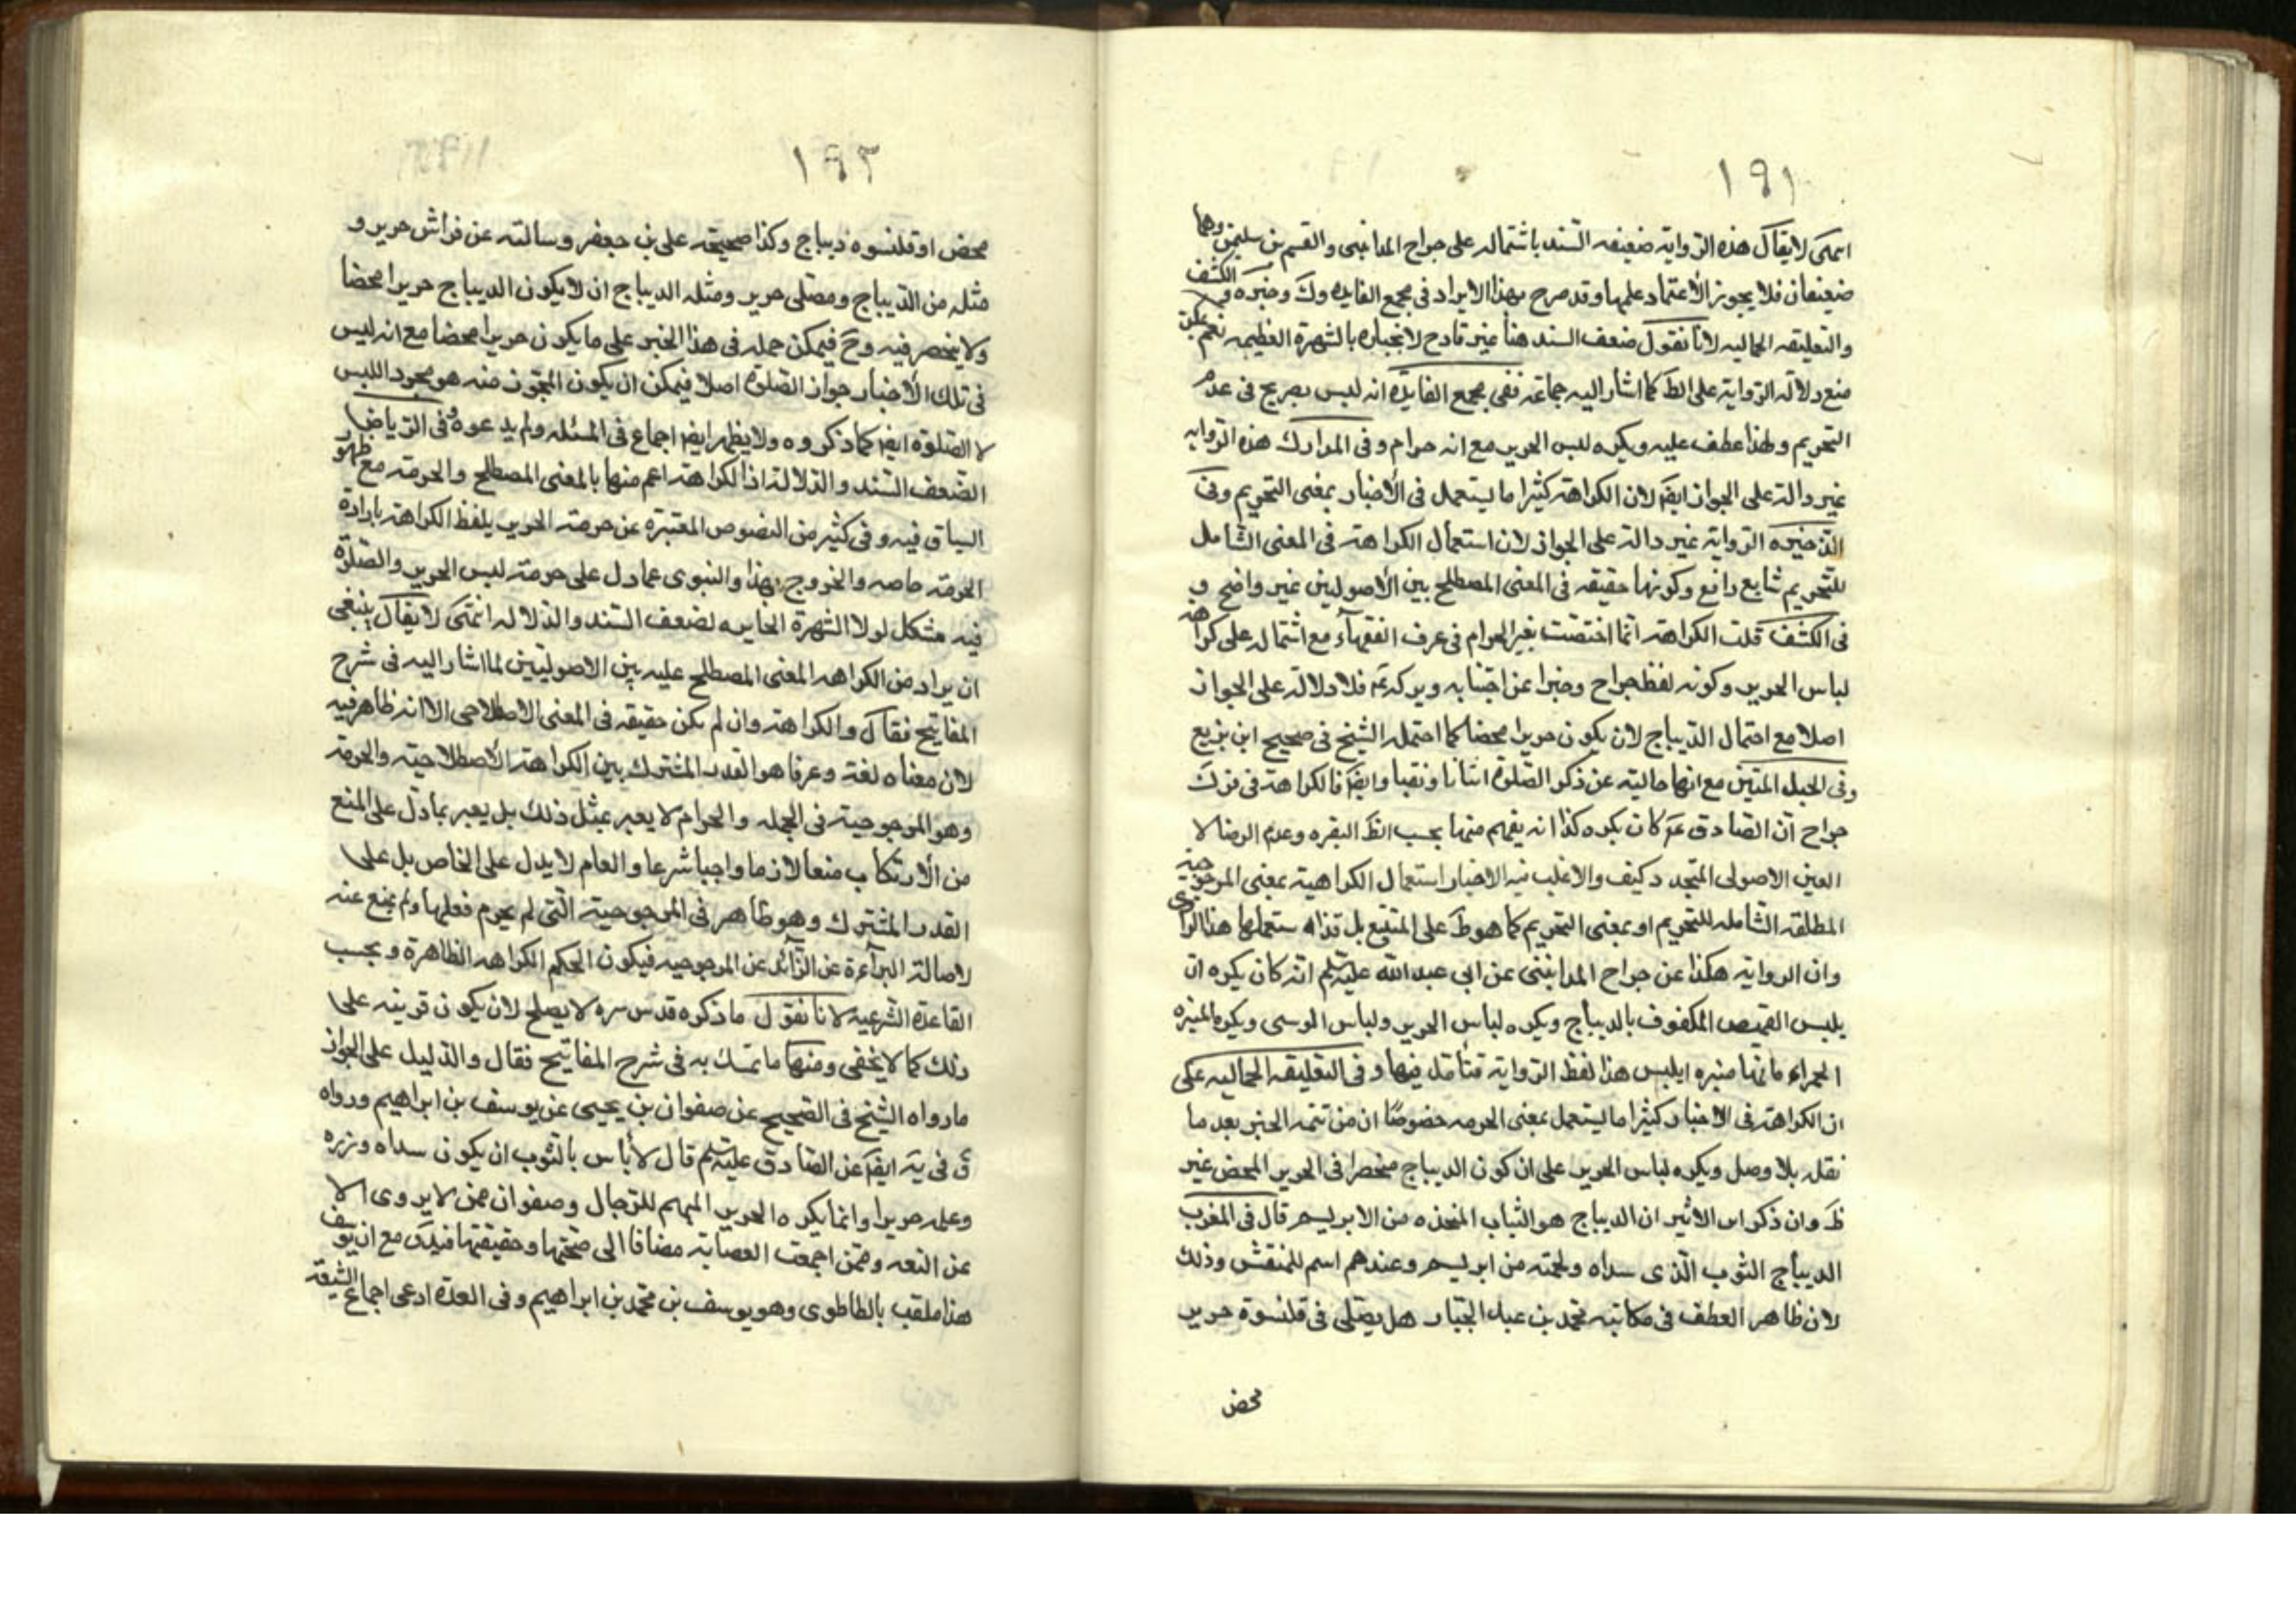 ١٩١
انتهى لا يقال هذه الرواية ضعيفة السند باشتماله على جراح المدائنى والقسم بن سليمن وهما
ضعيفان فلا يجوز الأعتماد عليها وقد صرح بهذا الايراد فى مجمع الفايدة وك وخيره و الكشف
والتعليقه الجماليه لانا نقول ضعف السند هنا غير قادح لانجباره بالشهرة العظيمه نعم يمكن
منع دلالة الرواية على الظ كما اشار اليه جماعة ففى مجمع الفايدة انه ليس بصريح فى عدم
التحريم ولهذا عطف عليه ويكره لبس الحرير مع انه حرام وفى المدارك هذه الرواية
غير دالة على الجواز ايضا لان الكراهة كثيرا ما يستعمل فى الأخبار بمعنى التحريم وفى
الذخيره الرواية غير دالة على الجواز لان استعمال الكراهة فى المعنى الشامل
للتحريم شايع ذايع وكونها حقيقه فى المعنى المصطلح بين الأصوليين غير واضح و
فى الكشف قلت الكراهة انما اختصت بغير الحرام فى عرف الفقهآء مع اشتماله على كراهة
لباس الحرير وكونه لفظ جراح وخبرا عن اجتنابه ويركد ثم فلا دلالة على الجواز
اصلا مع احتمال الديباج لان يكون حريرا محضا كما احتمله الشيخ فى صحيح ابن بزيع
وفى الحبل المتين مع انها خاليه عن ذكر الصلوة اثباتا ونفيا وايضا فالكراهة فى قول
جراح ان الصادق ع كان يكره كذا انه يفهم منها بحسب الظ النفره وعدم الرضا لا
المعين الاصولى المتجدد كيف والاغلب فيه الاخبار استعمال الكراهية بمعنى المرجوحية
المطلقه الشامله للتحريم او بمعنى التحريم كما هو ظ على المتتبع بل تراه ستعملها هذا الراوى
وان الروايه هكذا عن جراح المدائنى عن ابى عبد الله عليه السلم انه كان يكره ان
يلبس القميص المكفوف بالديباج ويكره لباس الحرير ولباس الوسى ويكره الميثره
الحمراء فانها ميثره ابليس هذا لفظ الرواية فتأمل فيها وفى التعليقه الجماليه على
ان الكراهة فى الاخبار كثيرا ما يستعمل بمعنى الحرمه خصوصا ان من تتمه الخبر بعد ما
نقل بلا وصل ويكره لباس الحرير على ان كون الديباج منحصرا فى الحرير المحض غير
ظ وان ذكر ابن الاثير ان الديباج هو الثياب المتخذه من الابريسم قال فى المغرب
الديباج الثوب الذى سداه ولحمته من ابريسم وعندهم اسم للمنقش وذلك
لان ظاهر العطف فى مكاتبه محمد بن عبد الجبار هل يصلى فى قلنسوة حرير
محض
١٩٢
محض او قلنسوه ديباج وكذا صحيحه على بن جعفر وسالته عن فراش حرير و
مثله من الديباج ومصلى حرير ومثله الديباج ان لا يكون الديباج حريرا محضا
ولا ينحصر فيه وح فيمكن حمله فى هذا الخبر على ما يكون حريرا محضا مع انه ليس
فى تلك الأخبار جواز الصلوة اصلا فيمكن ان يكون المجوز منه هو مجرد اللبس
لا الصلوة ايضا كما ذكروه ولا يظهر ايضا اجماع فى المسئله ولم يدعوه وفى الرياض
الضعف السند والدلالة اذ الكراهة اعم منها بالمعنى المصطلح والحرمة مع ظهور
السياق فيه وفى كثير من النصوص المعتبره عن حرمة الحرير بلفظ الكراهة بارادة
الحرمة خاصه والخروج بهذا والنبوى عما دل على حرمة لبس الحرير والصلوة
فيه مشكل لولا الشهرة الجابره لضعف السند والدلاله انتهى لا يقال ينبغى
ان يراد من الكراهه المعنى المصطلح عليه بين الاصوليين لما اشار اليه فى شرح
المفاتيح فقال والكراهة وان لم يكن حقيقه فى المعنى الاصطلاحى الا انه ظاهر فيه
لان معناه لغة وعرفا هو القدر المشترك بين الكراهة الأصطلاحية والحرمة
وهو المرجوحية فى الجمله والحرام لا يعبر بمثل ذلك بل يعبر بما دل على المنع
من الأرتكاب منعا لازما واجبا شرعا والعام لا يدل على الخاص بل على
القدر المشترك وهو ظاهر فى المرجوحية التى لم يحرم فعلها ولم يمنع عنه
لاصالة البرآءة عن الزآئد عن المرجوحيه فيكون الحكم الكراهه الظاهرة وبحسب
القاعدة الشرعية لانا نقول ما ذكره قدس سره لا يصلح لان يكون قرينه على
ذلك كما لا يخفى ومنها ما تمسك به فى شرح المفاتيح فقال والدليل على الجواز
ما رواه الشيخ فى الصحيح عن صفوان بن يحيى عن يوسف بن ابراهيم ورواه
ق فى يه ايضا عن الصادق عليه السلم قال لا بأس بالثوب ان يكون سداه وزره
وعلمه حريرا وانما يكره الحرير المبهم للرجال وصفوان ممن لا يروى الا
عن الثقه وممن اجمعت العصابة مضافا الى صحتها وحقيقتها فيه ك مع ان يوسف
هذا ملقب بالطاطرى وهو يوسف بن محمد بن ابراهيم وفى العدة ادعى اجماع الشيعة